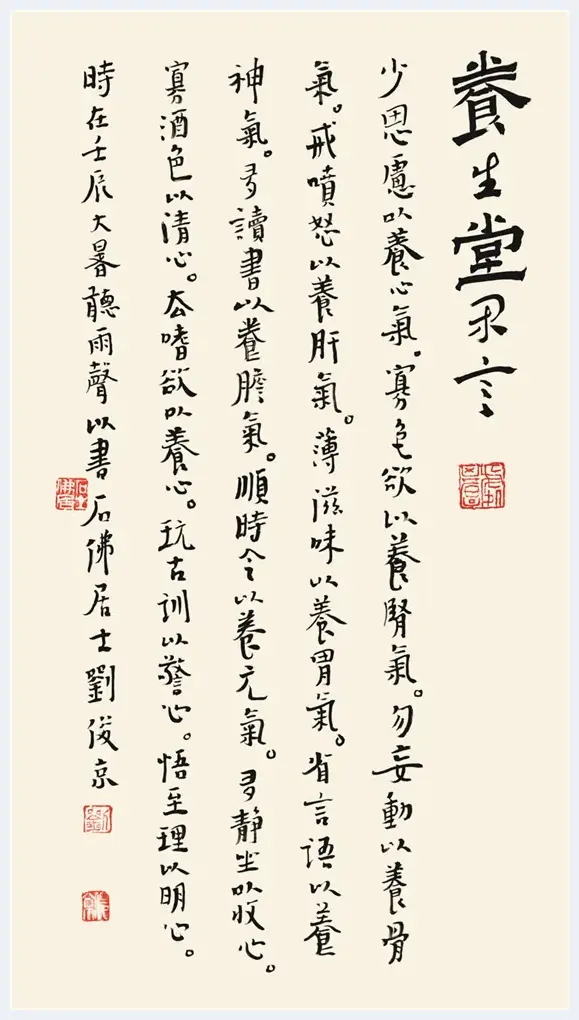 養生堂言
少思慮以養心氣。寡色欲以養腎氣。勿妄動以養骨
氣。戒噴怒以養肝氣。薄滋味以養胃氣。省言語以養
神氣。多讀書以養膽氣。順時令以養元氣。多靜坐以收心。
寡酒色以清心。去嗜欲以養心。玩古訓以警心。悟至理以明心。
時在壬辰大暑聽雨聲以書石佛居士劉俊京